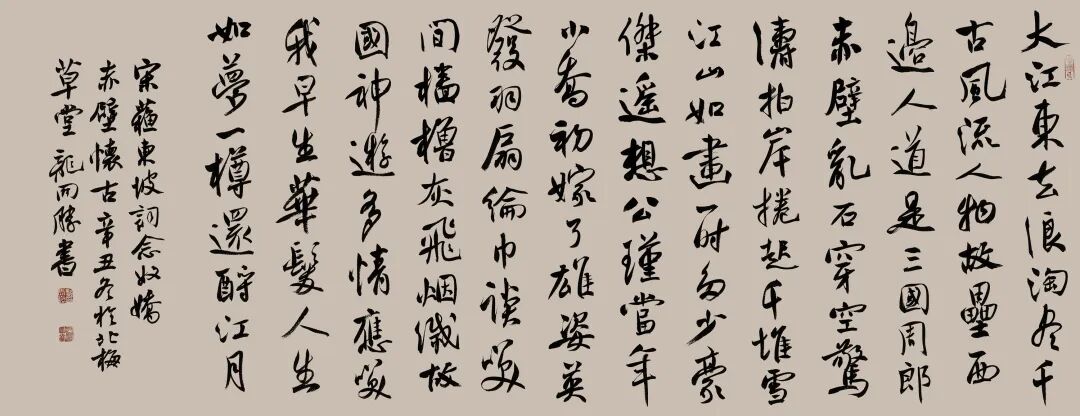 大江東去浪淘尽千
古風流人物故壘西
邊人道是三國周郎
赤壁亂石穿空驚
濤拍岸捲起千堆雪
江山如畫一時多少豪
傑遥想公瑾當年
小喬初嫁了雄姿英
發羽扇綸巾談笑
間檣櫓灰飛烟滅故
國神遊多情應笑
我早生華髮人生
如夢一樽還酹江月
宋蘇東坡詞念奴嬌
赤壁懷古辛丑冬於北梅
草堂龍開勝書